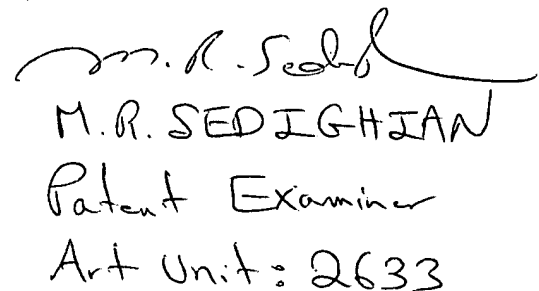 M.R.SEDIGHIAN
Patent Examiner
Art Unit: 2633